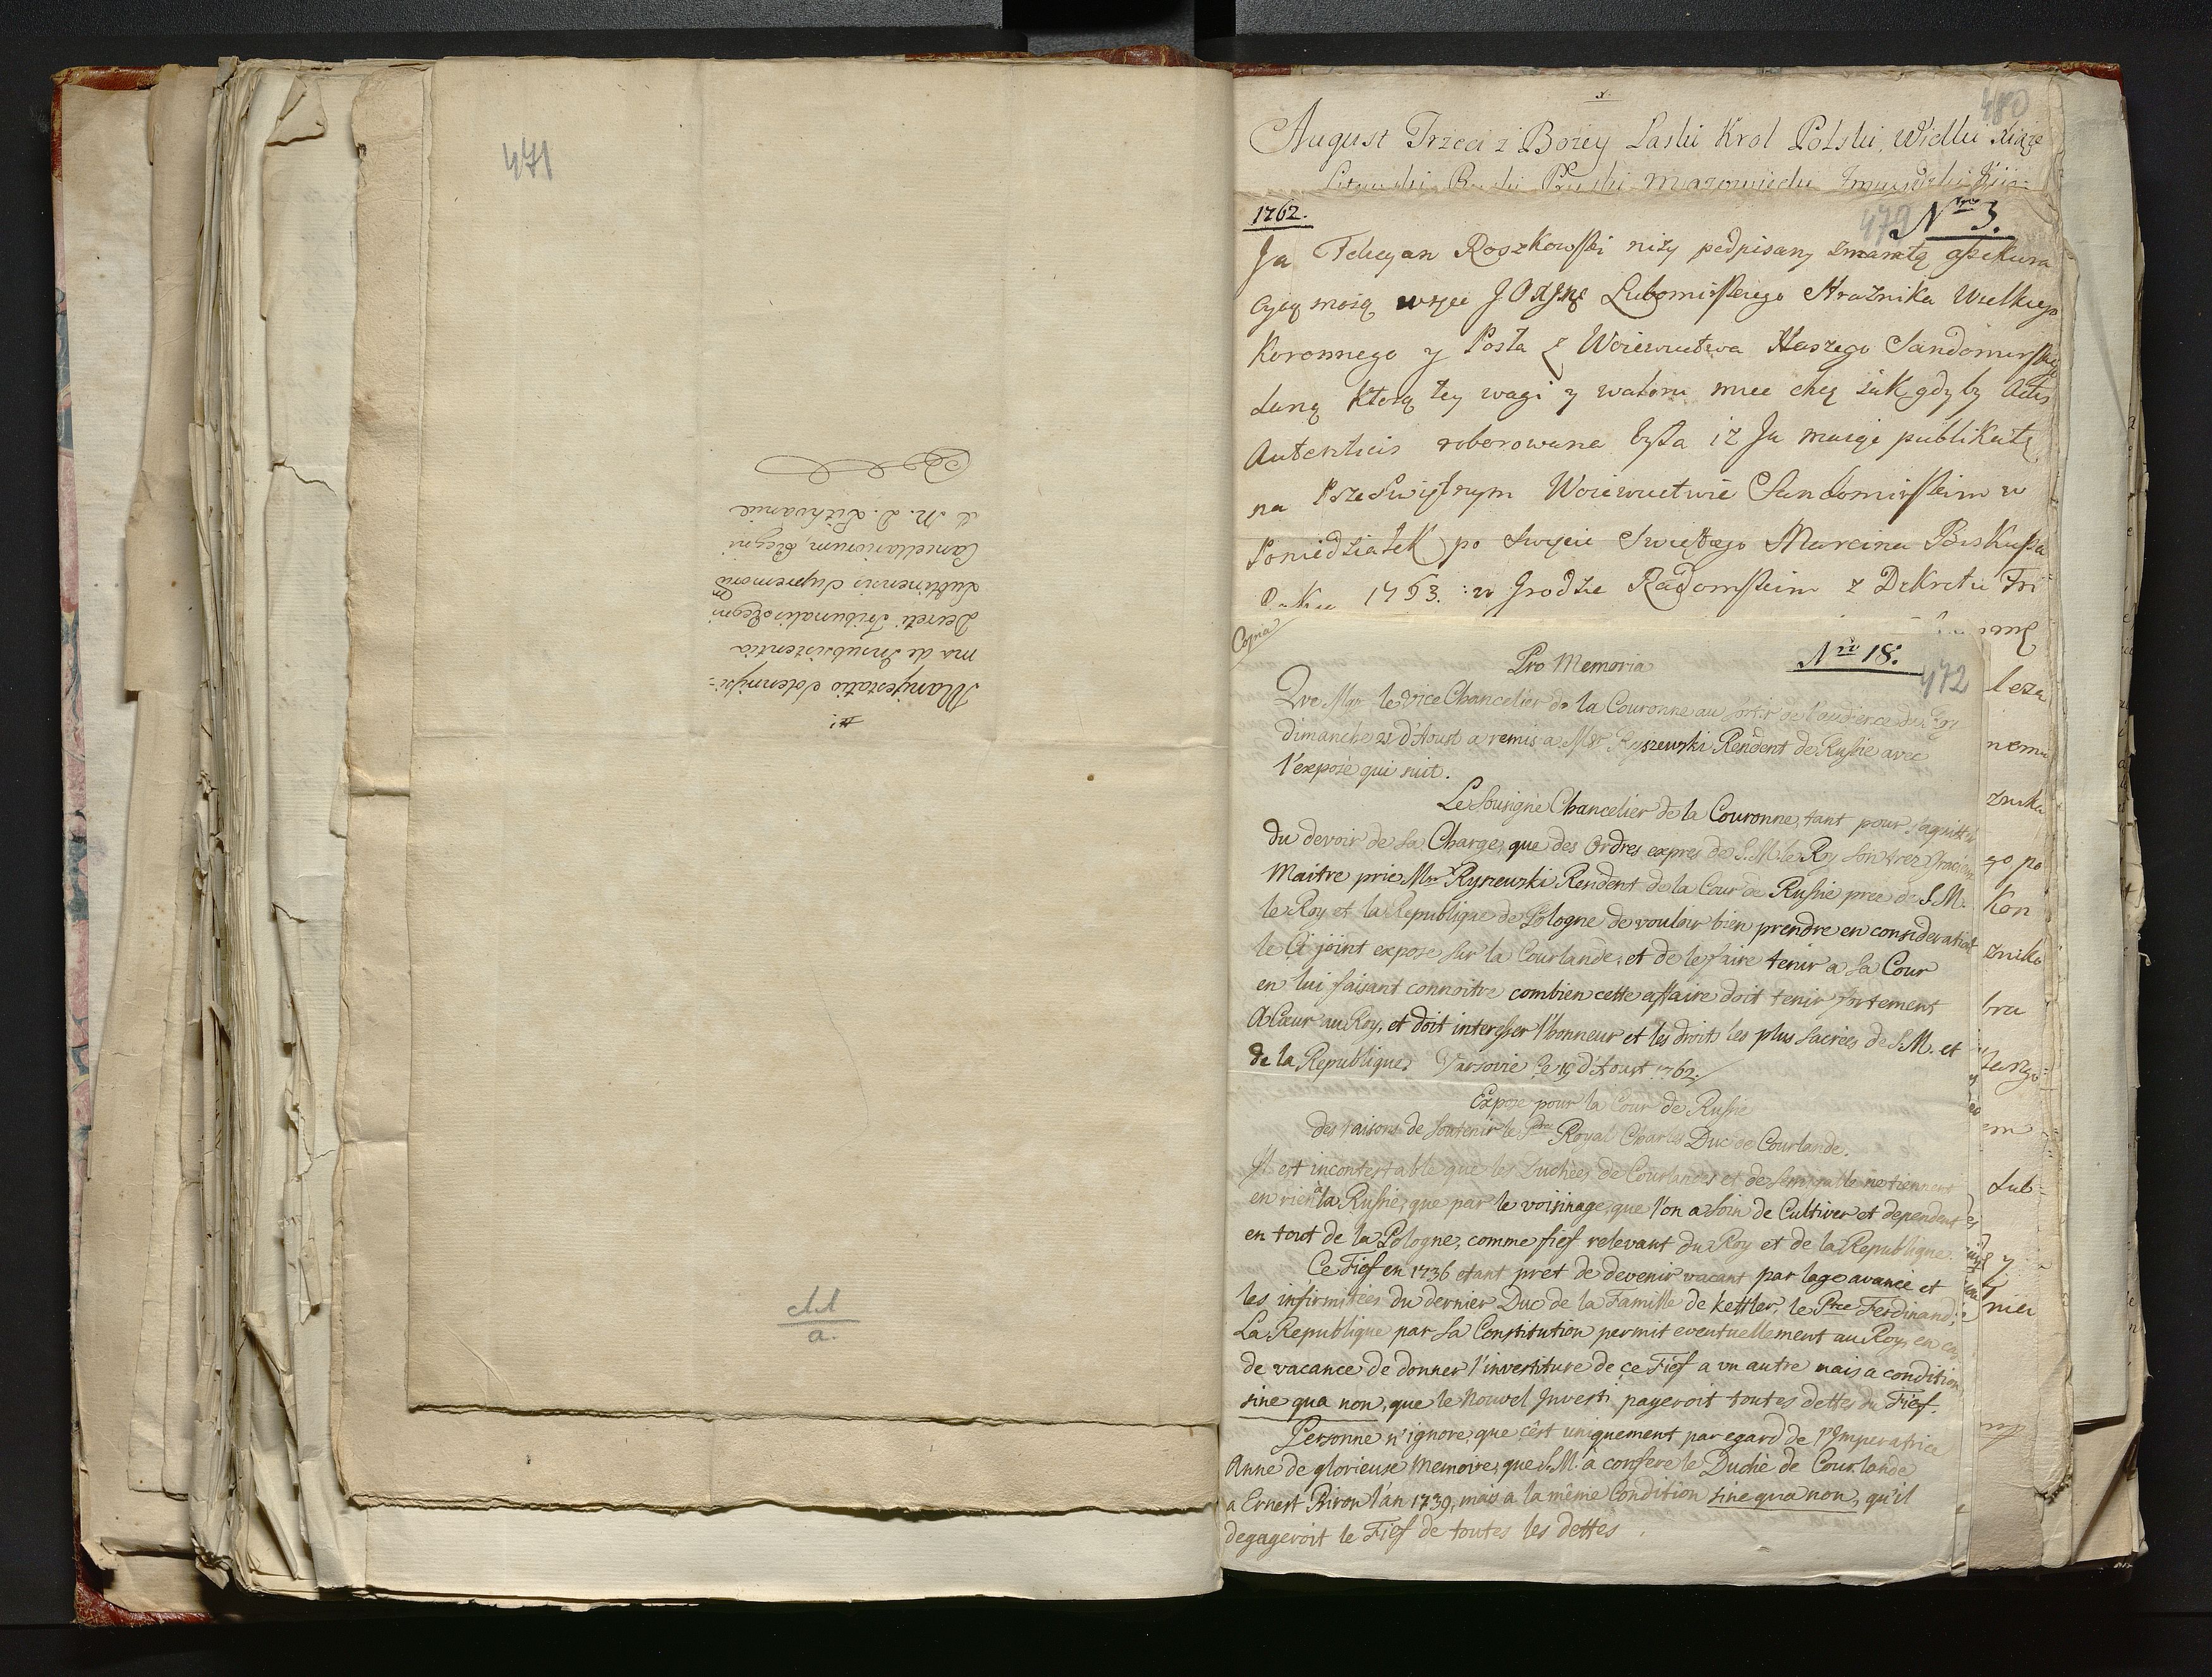 471
#.
Manifestatio Solennissi=
ma de Insubsistentia
Decreti Tribunalis Regni
Lublinensis Supremorum
Cancellariorum, Regni
& M. D. Lithvaniæ
dd
a.
480
August Trzeci z Bożey Łaski Krol Polski, Wielki Xiąże
Litewski Ruski Pruski Mazowiecki Zmudzki Kiio
1762.
479 Nro 3.
Ja Felicyan Roszkowski niży podpisany zmamtą assekura
cyią moią wzięc J O Xsne Lubomirskiego Strażnika Wielkiego
Koronnego y Posła z Woiewuctwa Naszego Sandomirskie
daną ktorą tey wagi y waloru miec chcę iak gdyby Actis
Autenticis roborowana była iż Ja maiąc publikatę
na Przeświętnym Woiewuctwie Sandomirskim w
Poniedziałek po Swięcie Swiętego Marcina Biskupa
Roku 1763. w Grodzie Radomskim z Dekretu Tri
Copia
Nro 18.
Pro Memoria
472
Que Mgr le Vice Chancelier de la Couronne au sortir de l'audience du Roy
dimanche 21 d'Aoust a remis a Msr Ryszewski Rendent de Russie avec
l'exposè qui suit.
Le Sousigné Chancelier de la Couronne, tant pour s'aquitter
du devoir de sa Charge, que des Ordres expres de S. M. le Roy son trez Gracieux
Maitre prie Mr Ryszewski Rendent de la Cour de Russie prez de S. M.
le Roy et la Republique de Pologne de vouloir bien prendre en consideration
le Ci joint expose sur la Courlande, et de le faire tenir a sa Cour
en lui faisant connoitre combien cette affaire doit tenir fortement
A Cœur au Roy, et doit interesser l'honneur et les droits les plus sacrées de S. M. et
de la Republique. Varsovie ce 19 d'Aoust 1762.
Expose pour la Cour de Russie
des raisons de soutenir le Pce Royal Charles Duc de Courlande.
Il est incontestable que les Duchées de Courlande et de Semigalle ne tiennent
en rien à la Russie, que par le voisinage, que l'on a soin de Cultiver et dependent
en tout de la Pologne, comme fief relevant du Roy et de la Republique.
Ce Fief en 1736 etant prèt de devenir vacant par lage avancé et
les infirmitees du dernier Duc de la Famille de Kettler, le Pce Ferdinand;
La Republique par sa Constitution permit eventuellement au Roy, en cas
de vacance de donner l'investiture de ce Fief a un autre mais a condition
sine qua non, que le Nouvel Investi payeroit toutes dettes du Fief.
Personne n'ignore, que c'est uniquement par egard de l'Imperatrice
Anne de glorieuse Memoire, que S. M. a confere le Duchè de Courlande
a Ernest Biron l'an 1739, mais a la même Condition sine qua non, qu'il
degageroit le Fief de toutes les dettes.
leza
nemu
znika
go po
Kon
znika
bra
em
Lub=
y
nia